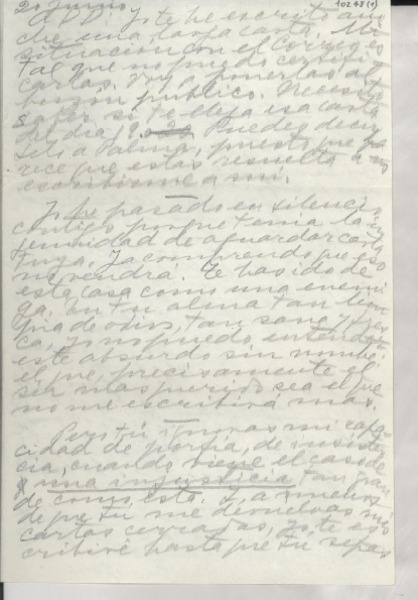 20 junio
102 48 (1)
DD: Yo te he escrito ano
che una larga carta. Mi
situación con el Correo es
tal que no puedo certificar
cartas. Voy a ponerlas al
buzón público. Necesito
saber si te llega esa carta
del día 19. Puedes decír
selo a Palma, puesto que pa
rece que estás resuelta a no
escribirme a mí.
Yo he pasado en silencio
contigo porque tenía la in
genuidad de aguardar carta
tuya. Ya comprendo que eso
no vendrá. Te has ido de
esta casa como una enemi
ga. En tu alma tan lim
pia de odios, tan sana y
yo no puedo entender
este absurdo sin nombre:
el que, precisamente el
ser más querido sea el que
no me escribirá más.
Pero tú ignoras mi capa
cidad de porfía, de insisten
cia, cuando viene el caso de
una injusticia tan gran
de como ésta. Y, a menos
de que tú me devuelvas mis
cartas cerradas, yo te es
cribiré hasta que tú sepas